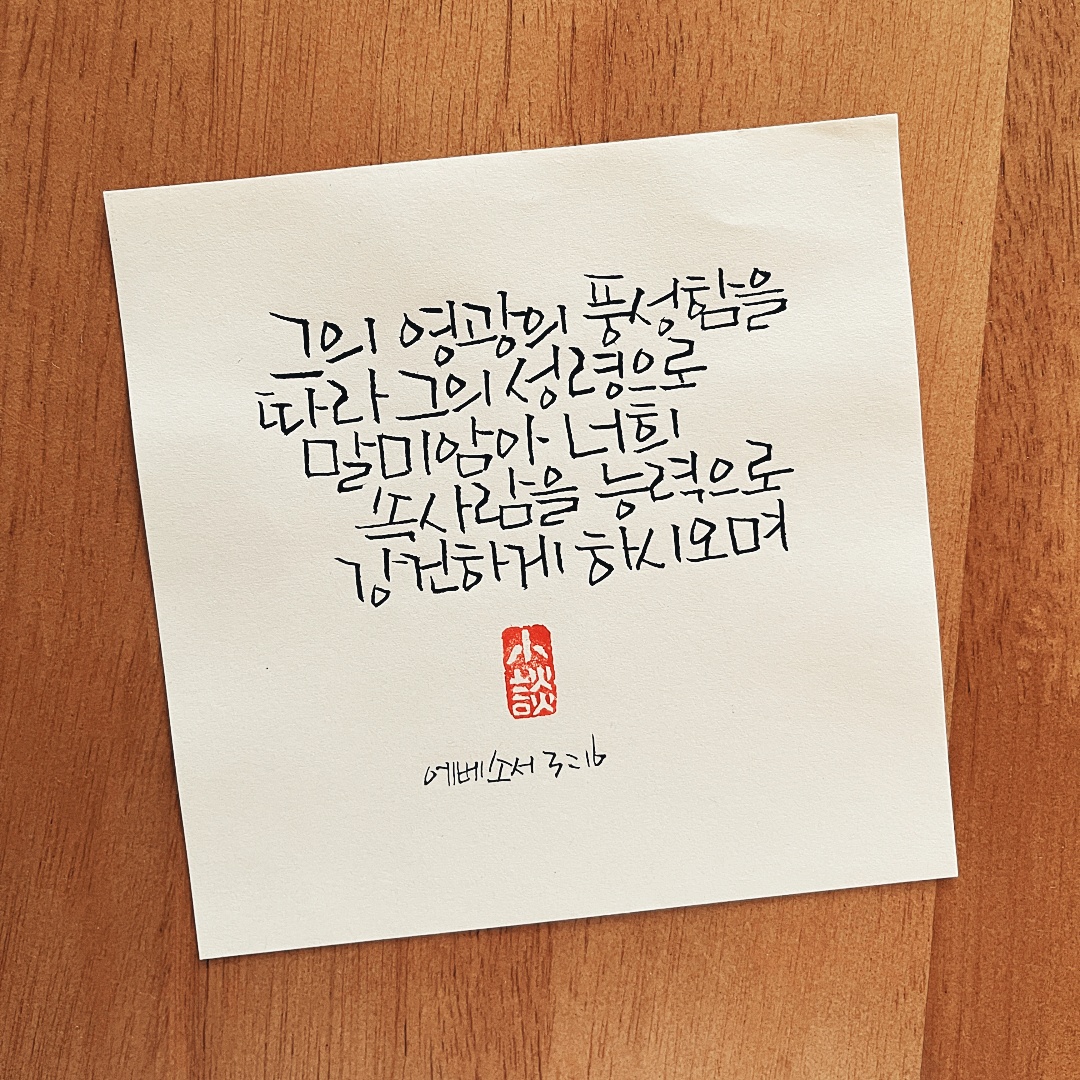 그의 영광의 풍성함을
따라 그의 성령으로
말미암아 너희
속사람을 능력으로
강건하게 하시오며
小談
에베소서 3:16